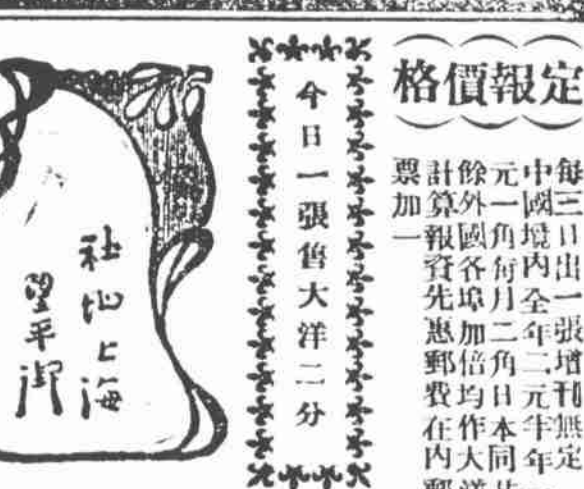 定報價格
每三日出一張增刊無定
中國境內全年二元半年
元一角每月二角日本同
餘外國各埠加倍均作大
計算報資先惠郵費在內郵
票加一
今日一張售大洋二分
社址上海
望平街